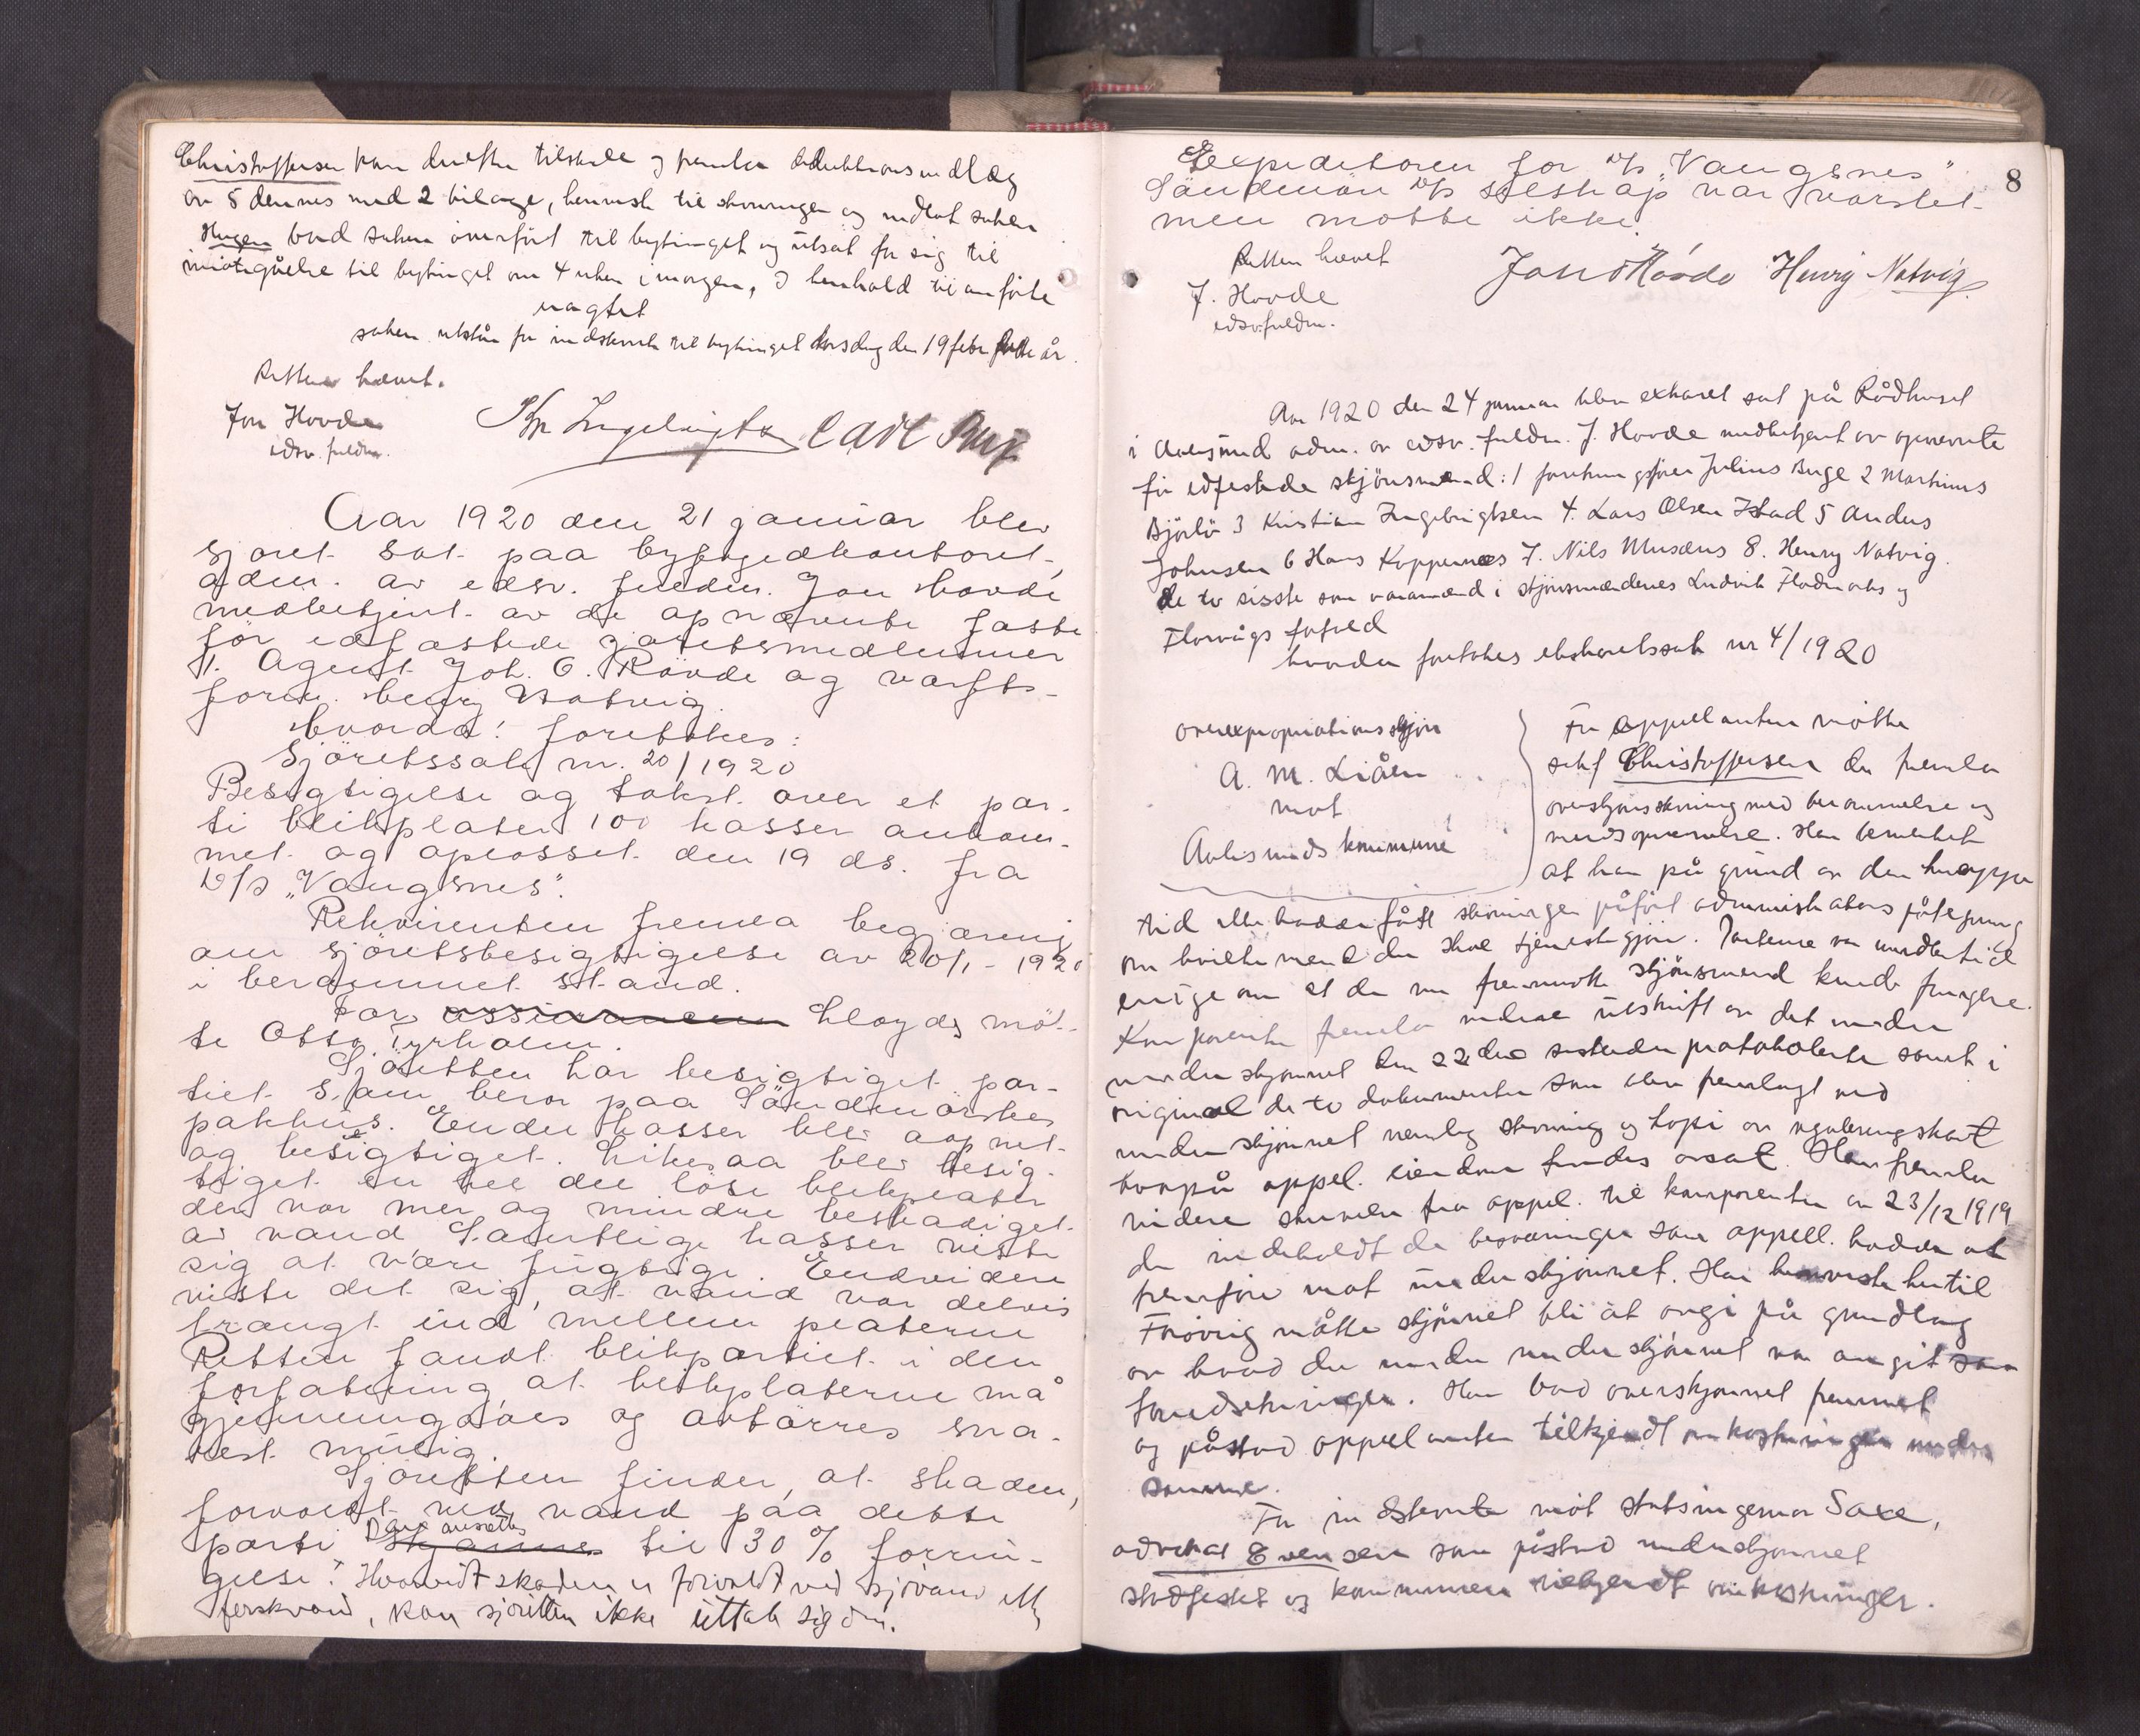 Christoffersen kom derefter tilstede og fremla deduktionsindlæg
av 5 dennes med 2 bilage, henviste til stevningen og indlot saken
Haugen bad saken överfört til bytinget og utsat for sig til
imötegåelse til bytinget om 4 uker i morgen. I henhold til anförte
eragtet
saken utstår for indstevnte til bytinget torsdag den 19 febr dette år.
Retten hævet.
Jon Hovde
edsv. fuldm.
Kr Ingebrigtsen Carl
Aar 1920 den 21 januar blev
sjöret sat paa byfogedkontoret,
adm. av edsv. fuldm. Jon Hovde
medbetjent av de opnævnte faste
för edfæstede sjöretsmedlemmer
1. Agent Joh. E. Rövde og værfts-
form. Henry Natvig.
Hvorda: foretokes:
Sjöretssak nr. 20/1920
Besigtigelse og takst over et par-
ti blikplater 100 kasser ankom-
met og oplosset den 19 ds. fra
D/S „Vangsnes".
Rekvirenten fremla begjæring
om sjöretsbesigtigelse av 20/1 - 1920
i berammet stand.
For assuranceen Lloyds möt-
te Otto Tyrholm.
Sjöretten har besigtiget par-
tiet som beror paa Söndmörskes
pakhus. Endel kasser blev aapnet
og besigtiget. Likesaa blev besig-
tiget en hel del löse blikplater
der var mer og mindre beskadiget
av vand Samtlige kasser viste
sig at være fugtige. Endvidere
viste det sig, at vand var delvis
trængt ind mellem platerne
Retten fandt blikpartiet i den
forfatning at blikplaterne må
gjennemgåes og avtörres sna-
rest mulig.
Sjöretten finder, at skaden,
forvoldt ved vand paa dette
parti kan ansættes skjönnes til 30 % forrin-
gelse. Hvorvidt skaden er forvoldt ved sjövand eller
ferskvand, kan sjöretten ikke uttale sig om.
8
Expeditören for D/S „Vangsnes"
Söndmöre D/S selskap var varslet
men mötte ikke.
Retten hævet
J. Hovde
edsv. fuldm.
Joh E Rövde Henry Natvig
Aar 1920 den 24 januar blev extraret sat på Rådhuset
i Aalesund adm. av edsv. fuldm. J. Hovde medbetjent av opnevnte
för edfestede skjönsmænd: 1 forretningsförer Julius Buge 2 Martinus
Björlö 3 Kristian Ingebrigtsen 4. Lars Olsen Istad 5 Anders
Johnsen 6 Hans Koppernæs 7. Nils Musæus 8. Henry Natvig.
de to sisste som varamænd i skjönsmændenes Ludvik Flodmarks og
Flovågs forfald
hvorda foretokes ekstraretssak nr 4/1920
overexpropriationsskjön
A. M. Liåen
mot
Aalesunds kommune
For appellanten mötte
sakf Christoffersen der fremla
overskjönsstevning med berammelse og
mendsopnævnelse. Han bemerket
at han på grund av den knappe
tid ikke hadde fått stevningen påfört administrators påtegning
om hvilke mend der skal tjenestgjöre. Parterne var imidlertid
enige om at de nu fremmötte skjönsmend kunde fungere.
Komparenten fremla videre utskrift av det under
underskjönnet den 22 des sistleden protokolerte samt i
original de to dokumenter som blev fremlagt ved
underskjönnet nemlig stevning og kopi av reguleringskart
hvorpå appel. eiendom findes avsat. Han fremla
videre skrivelse fra appel. til komparenten av 23/12 1919
der indeholdt de besværinger som appell. hadde at
fremföre mot underskjönnet. Han henviste hertil
Forövrig måtte skjönnet bli at avgi på grundlag
av hvad der under underskjönnet var angit som
forudsetninger. Han bad overskjönnet fremmet
og påstod appellanten tilkjendt omkostninger under
samme.
For indstevnte möt stadsingeniör Saxe,
advokat Evensen som påstod underskjönnet
stadfestet og kommunen tilkjendt omkostninger.